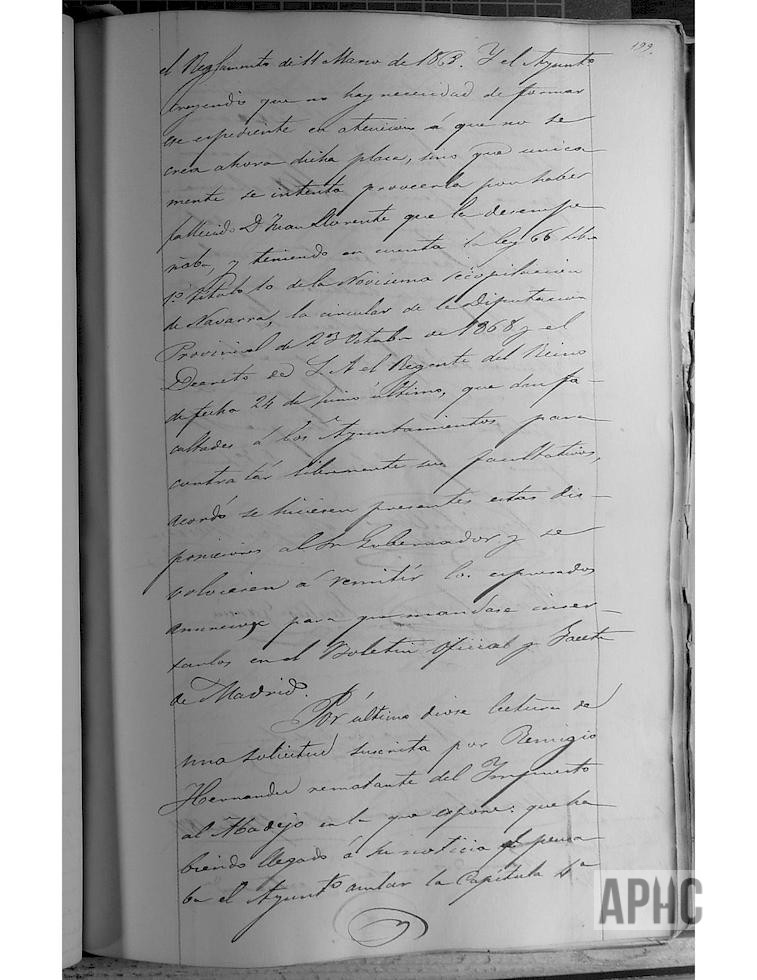 199.
el Reglamento de 11 Marzo de 1863. Y el Ayunto
creyendo que no hay necesidad de formar
ese espediente en atencion á que no se
crea ahora dicha plaza, sino que unica
mente se intenta proveerla por haber
fallecido D. Juan Llorente que la desempe
ñaba, y teniendo en cuenta la ley 66 libro
1º titulo 10 de la Novisima recopilacion
de Navarra, la circular de la Diputacion
Provincial de 23 Octubre de 1868 y el
Decreto de S. A. el Regente del Reino
de fecha 24 de Junio último, que dan fa-
cultades á los Ayuntamientos para
contratar libremente sus facultativos,
acordó se hiciesen presentes estas dis-
posiciones al Sr Gobernador y se
volviesen á remitir los espresados
anuncios para que mandase inser-
tarlos en el Boletin Oficial y Gaceta
de Madrid.
Por último diose lectura de
una solicitud suscrita por Remigio
Hernandez rematante del Impuesto
al Abadejo en la que espone: que ha
biendo llegado á su noticia pensa
ba el Ayunto anular la Capítula 4ª
APHC